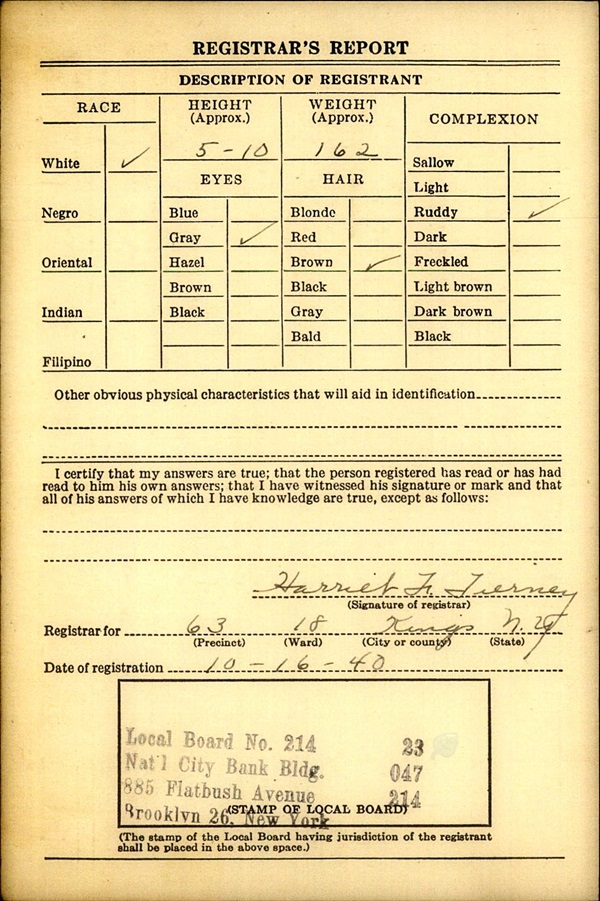 REGISTRAR'S REPORT
DESCRIPTION OF REGISTRANT
RACE
HEIGHT
(Approx.)
WEIGHT
(Approx.)
COMPLEXION
5-10
162
White ✓
EYES
HAIR
Sallow
Light
Negro
Blue
Blonde
Ruddy ✓
Gray ✓
Red
Dark
Oriental
Hazel
Brown ✓
Freckled
Brown
Black
Light brown
Indian
Black
Gray
Dark brown
Bald
Black
Filipino
Other obvious physical characteristics that will aid in identification
I certify that my answers are true; that the person registered has read or has had
read to him his own answers; that I have witnessed his signature or mark and that
all of his answers of which I have knowledge are true, except as follows:
Harriet F. Tierney
(Signature of registrar)
Registrar for 63 18 Kings N.Y.
(Precinct) (Ward) (City or county) (State)
Date of registration 10-16-40
Local Board No. 214 23
Nat'l City Bank Bldg. 047
885 Flatbush Avenue 214
(STAMP OF LOCAL BOARD)
Brooklyn 26, New York
(The stamp of the Local Board having jurisdiction of the registrant
shall be placed in the above space.)